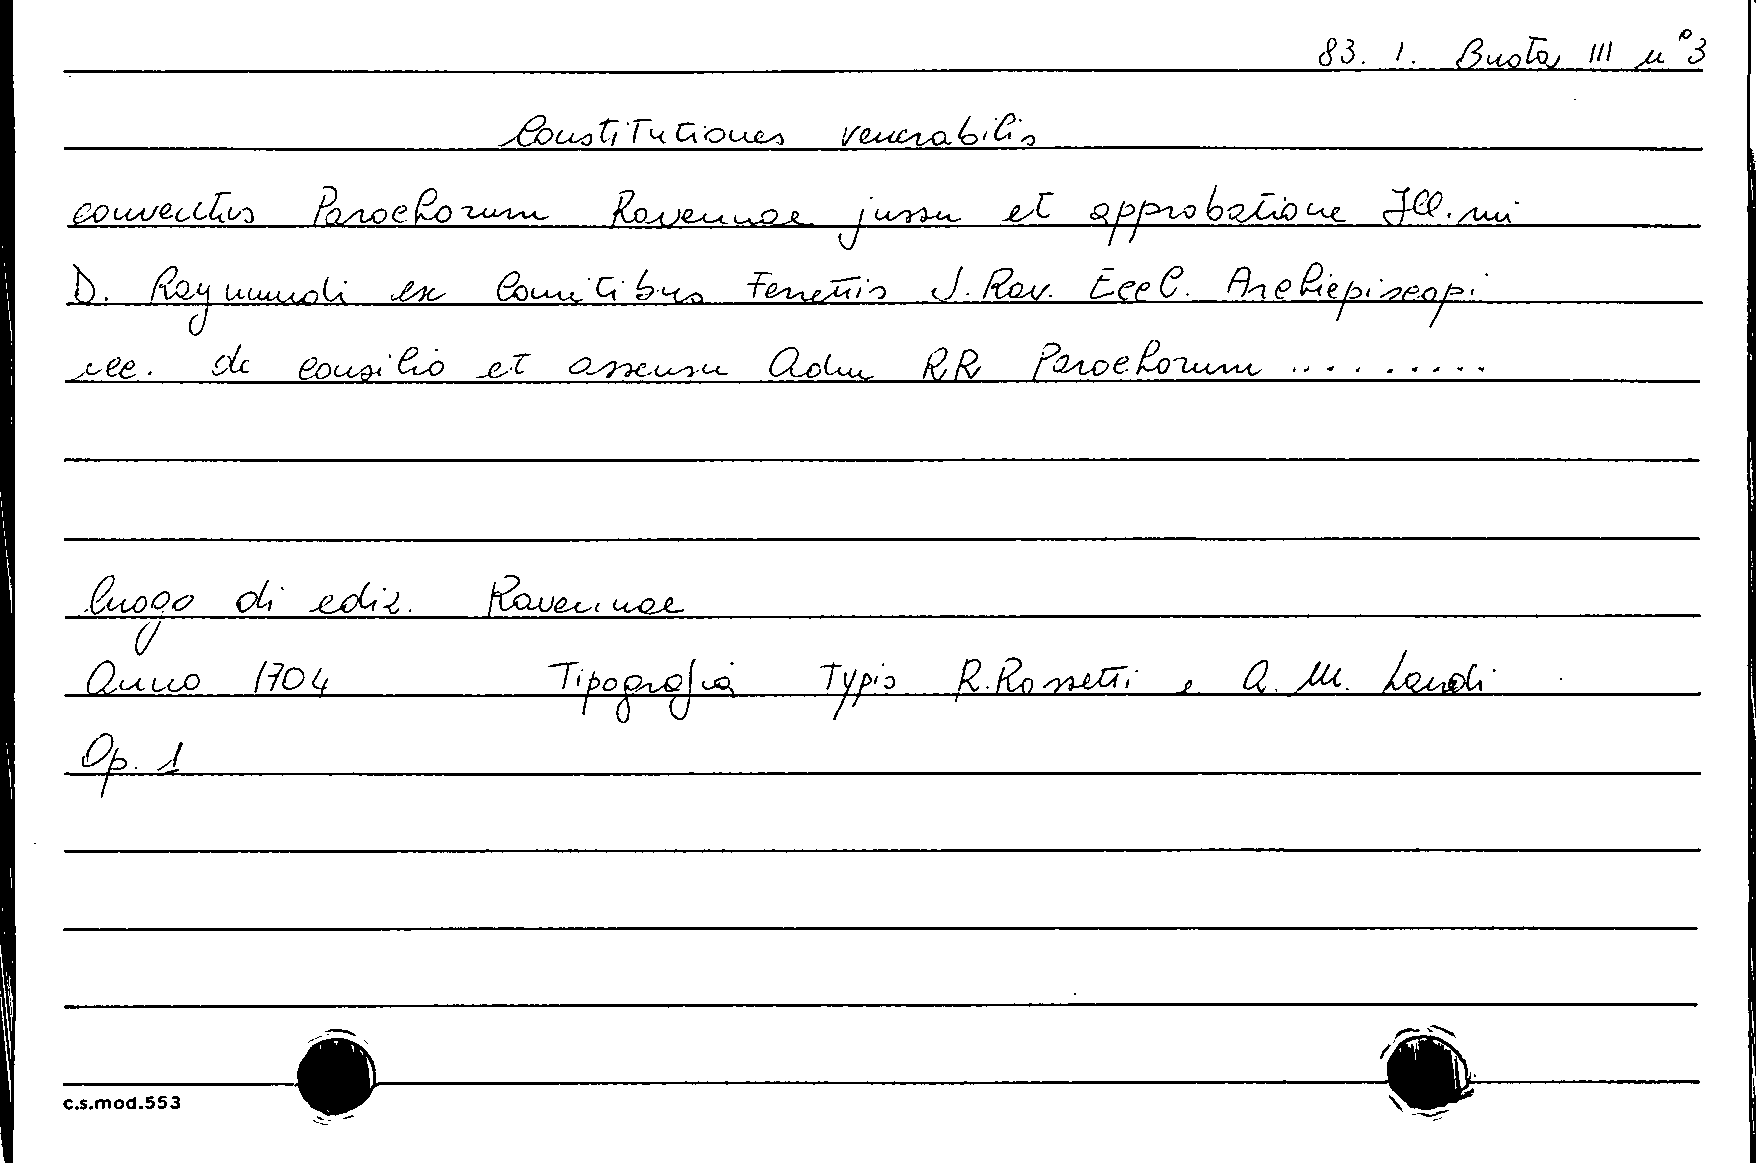 83. 1. Busta III n° 3
Constitutiones venerabilis
conventus Parochorum Ravennae jussu et approbatione Ill.mi
D. Raymundi ex Comitibus Ferrettis S. Rav. Eccl. Archiepiscopi
ecc. de consilio et assensu Adm RR Parochorum .........
luogo di ediz. Ravennae
Anno 1704 Tipografia Typis R. Rossetti e A. M. Landi
Op. 1
c.s.mod.553